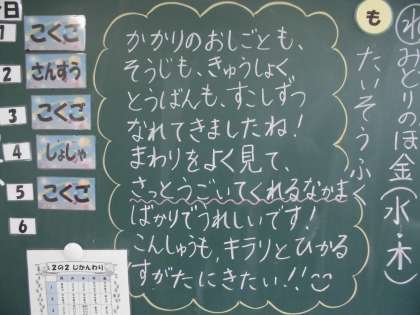 日
1 こくご
2 さんすう
3 こくご
4 しょしゃ
5 こくご
6
2の2 じかんわり
かかりのおしごとも、
そうじも、きゅうしょく
とうばんも、すこしずつ
なれてきましたね!
まわりをよく見て、
さっとうごいてくれるなかま
ばかりでうれしいです!
こんしゅうも、キラリとひかる
すがたにきたい!!
も
㊌みどりのぼ金(水・木)
たいそうふく